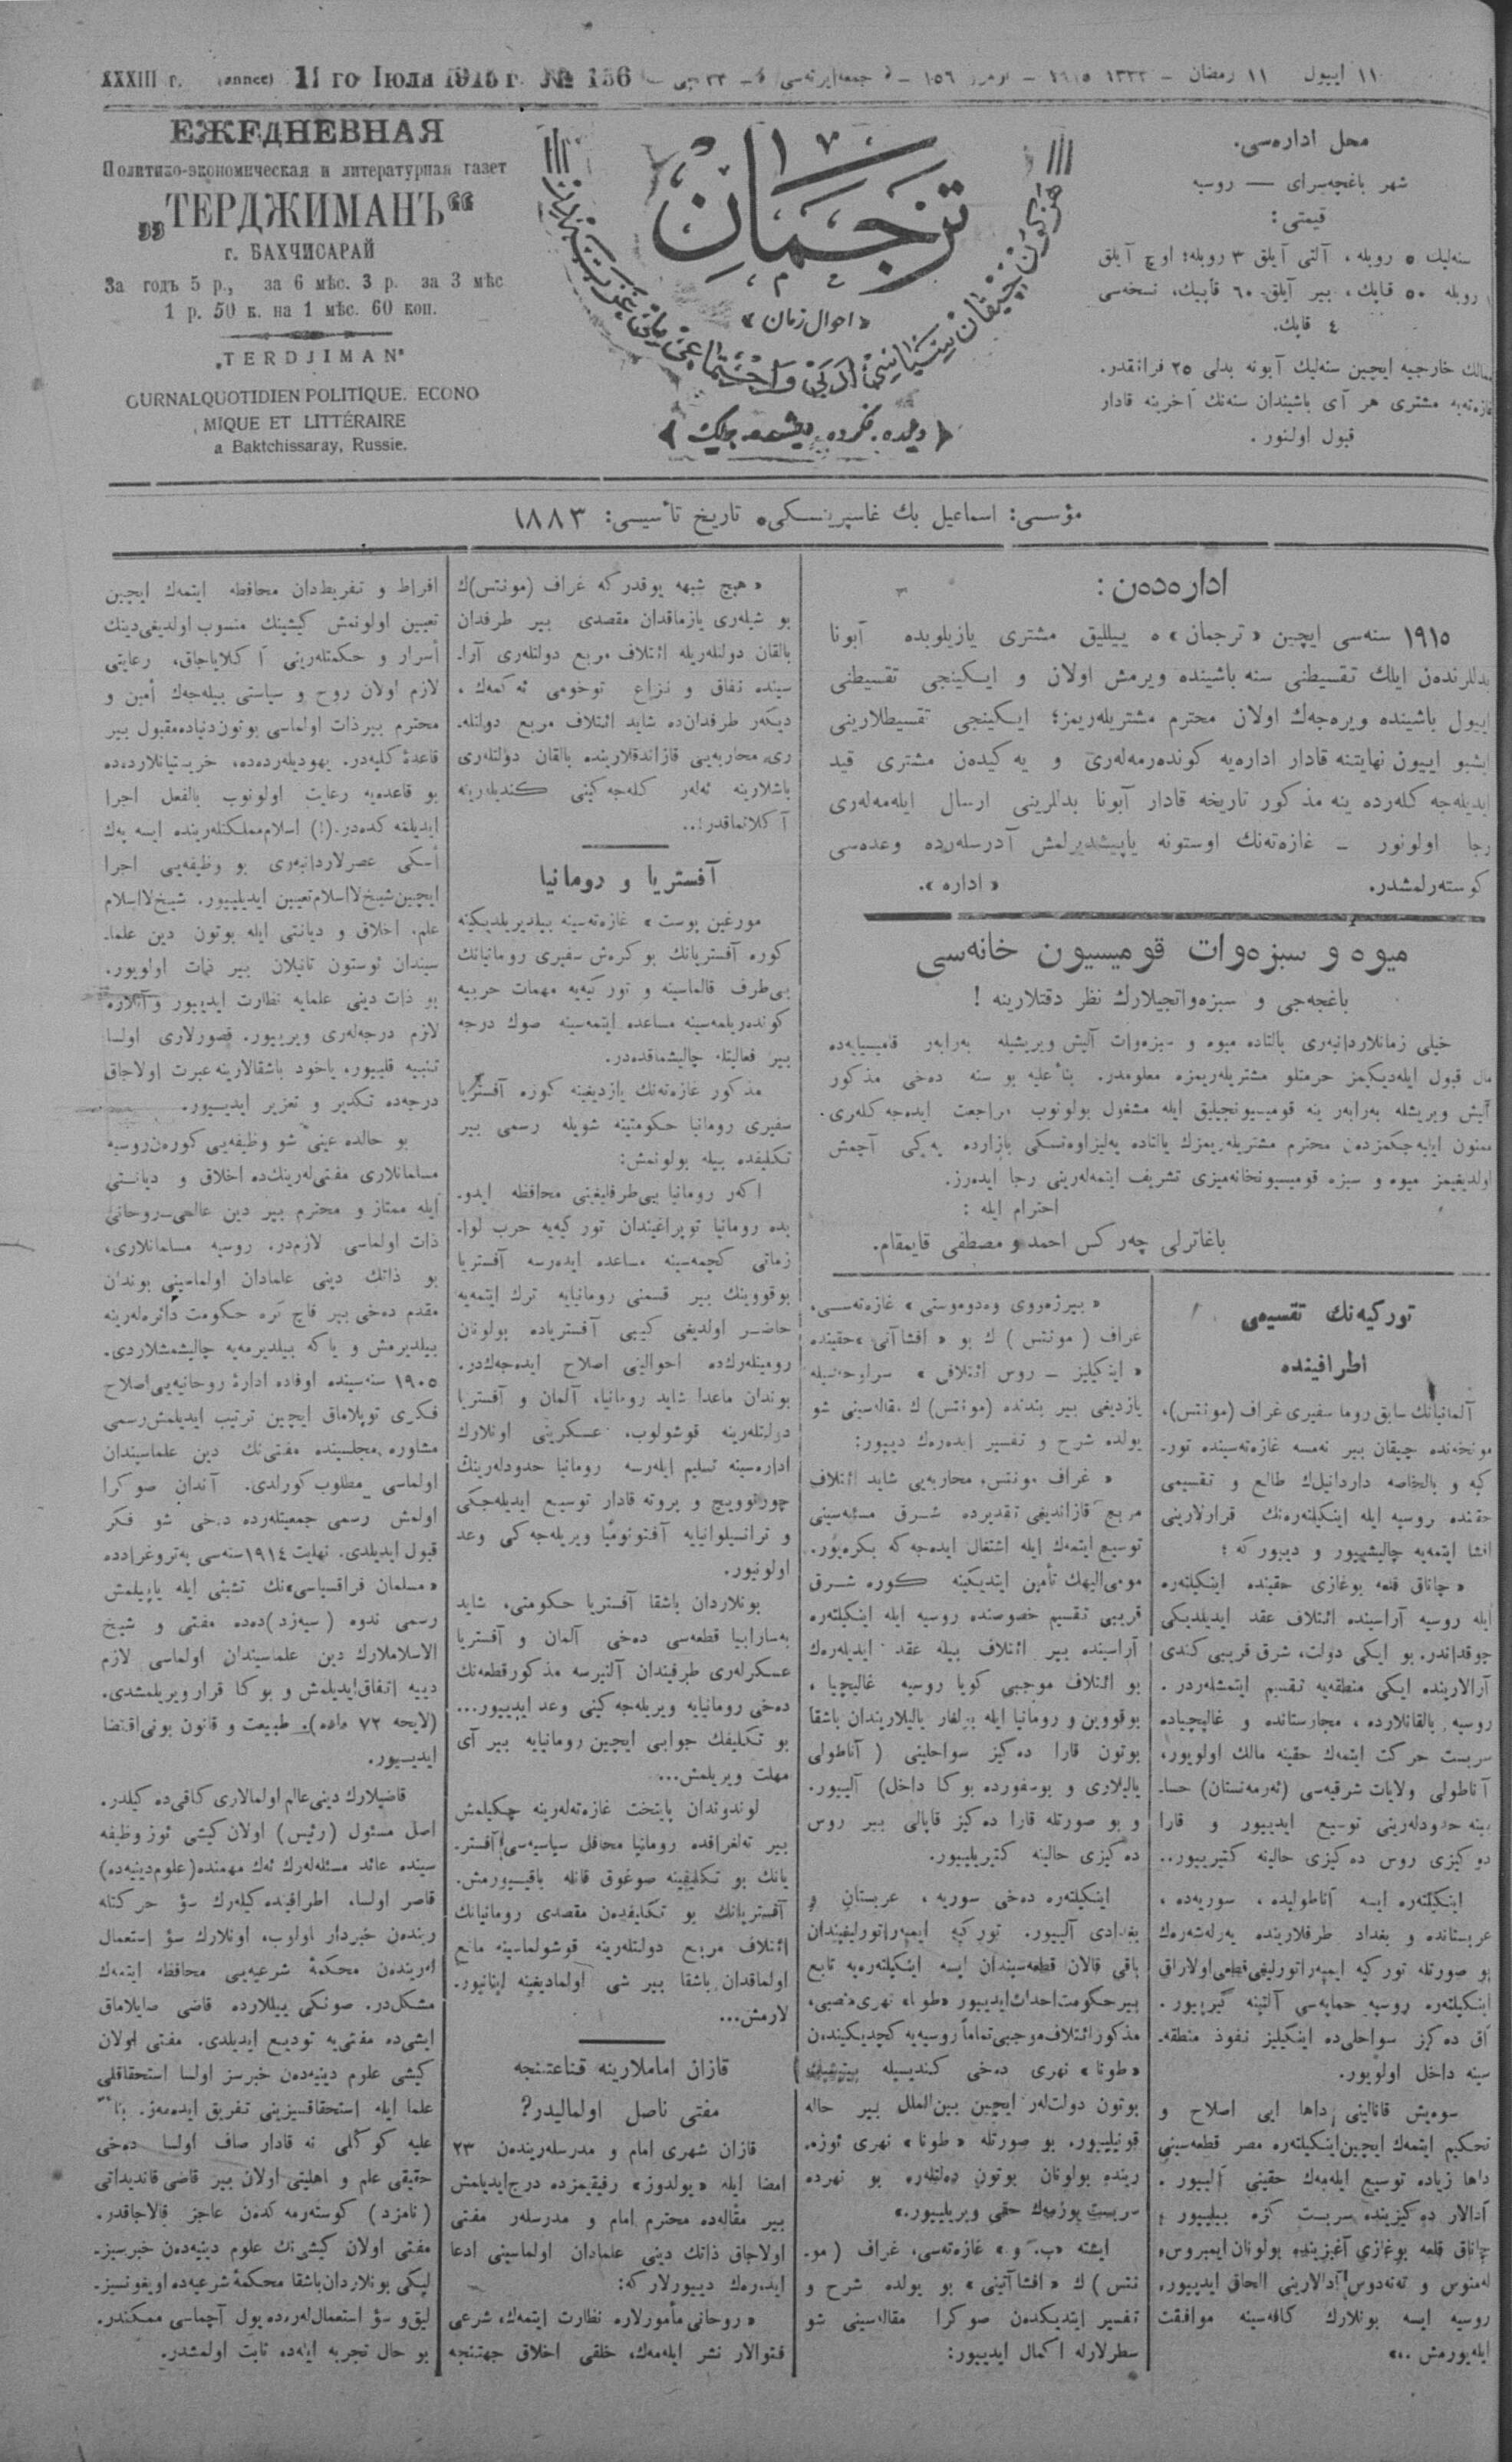 XXXIII г. (annee) 11 го Іюля 1915 г. № 156
١١ اييول ١١ رمضان – ١٣٣٣
ЕЖЕДНЕВНАЯ
Политико-экономическая и литературная газет
„ТЕРДЖИМАНЪ“
г. БАХЧИСАРАЙ
За годъ 5 р., за 6 мѣс. 3 р. за 3 мѣс
1 р. 50 к. на 1 мѣс. 60 коп.
„TERDJIMAN“
OURNALQUOTIDIEN POLITIQUE. ECONO
MIQUE ET LITTÉRAIRE
a Baktchissaray, Russie.
ترجمان
«احوال زمان»
محل اداره‌سی.
شهر باغچه‌سرای — روسیه
قیمتی:
سنه‌لیك ٥ روبله، آلتی آیلق ٣ روبله؛ اوچ آیلق
روبله ٥٠ قاپك، بیر آیلق ٦٠ قاپیك، نسخه‌سی
٤ قاپك.
ممالك خارجیه ایچین سنه‌لیك آبونه بدلی ٢٥ فرانقدر.
غازه‌ته‌یه مشتری هر آی باشیندان سنه‌نك آخرینه قادار
قبول اولنور.
مؤسسی: اسماعیل بك غاسپرینسكی، تاریخ تأسیسی: ١٨٨٣
اداره‌دەن:
١٩١٥ سنه‌سی ایچین «ترجمان» ه ییللیق مشتری یازیلوبده آبونا
بدللرندەن ایلك تقسیطنی سنه باشینده ویرمش اولان و ایكینجی تقسیطنی
اییول باشینده ویره‌جەك اولان محترم مشتریلەریمز؛ ایكینجی تقسیطلارینی
ایشبو اییون نهایتنه قادار اداره‌یه كوندەرمەلەری و یه كیدەن مشتری قید
ایدیله‌جه كلەرده ینه مذكور تاریخه قادار آبونا بدللرینی ارسال ایلەمەلەری
رجا اولونور – غازه‌ته‌نك اوستونه یاپیشدیرلمش آدرسلەرده وعده‌سی
كوسته‌رلمشدر. «اداره».
میوه و سبزه‌وات قومیسیون خانه‌سی
باغچه‌جی و سبزه‌واتجیلارك نظر دقتلارینه !
خیلی زمانلاردانبەری یالتاده میوه و سبزه‌وات آلیش ویریشیله بەرابەر
مال قبول ایله‌دیكیمز حرمتلو مشتریلەریمزه معلومدر. بناءً علیه بو سنه دەخی مذكور
آلیش ویریشله بەرابەر ینه قومیسیونجیلیق ایله مشغول بولونوب مراجعت ایده‌جه كلەری
ممنون ایلیه‌جكمزدەن محترم مشتریلەریمزك یالتاده یەلیزاوه‌تسكی بازارده یه كی آچمش
اولدیغیمز میوه و سبزه قومیسیونخانه‌میزی تشریف ایتمەلەرینی رجا ایدەرز.
احترام ایله :
باغاترلی چەركس احمد و مصطفی قایمقام.
توركیه‌نك تقسیمی
اطرافینده
آلمانیانك سابق روما سفیری غراف (مونتس)،
مونخه‌نده چیقان بیر نمسه غازه‌ته‌سینده تور-
كیه و بالخاصه داردانیل‌ك طالع و تقسیمی
حقنده روسیه ایله اینكیلتەره‌نك قرارلارینی
افشا ایتمه‌یه چالیشییور و دییور كه ؛
«چاناق قلعه بوغازی حقینده اینكیلتەره
ایله روسیه آراسینده ائتلاف عقد ایدیلدیكی
چوقداندر. بو ایكی دولت، شرق قریبی كندی
آرالارینده ایكی منطقه‌یه تقسیم ایتمشلەردر.
روسیه بالقانلارده، مجارستانده و غالیچیاده
سربست حركت ایتمەك حقینه مالك اولویور،
آناطولی ولایات شرقیه‌سی (ئەرمه‌نستان) حسا-
بینه حدودلەرینی توسیع ایدییور و قارا
ده‌كیزی روس ده‌كیزی حالینه كتیرییور..
اینكیلتەره ایسه آناطولیده، سوریه‌ده،
عربستانده و بغداد طرفلارینده یەرله‌شه‌رەك
بو صورتله توركیه ایمپەراتورلیغی قطعی اولاراق
اینكیلتەره روسیه حمایه‌سی آلتینه گیرییور.
آق ده‌كیز سواحلی‌ده اینگیلیز نفوذ منطقه-
سینه داخل اولویور.
سوه‌یش قانالینی داها ایی اصلاح و
تحكیم ایتمەك ایچین اینكیلتەره مصر قطعه‌سینی
داها زیاده توسیع ایله‌مەك حقینی آلییور.
آدالار ده‌كیزینده سربست كزه بیلییور ؛
چاناق قلعه بوغازی آغیزینده بولونان ایمبروس،
لەمنوس و تەنەدوس آدالارینی الحاق ایدییور.
روسیه ایسه بونلارك كافه‌سینه موافقت
ایله‌یورمش ..»
«بیرژه‌ووی وه‌دوموستی» غازه‌ته‌سی،
غراف (مونتس) ك بو «افشاآتی» حقینده
«اینكیلیز – روس ائتلافی» سرلوحه‌سیله
یازدیغی بیر بندنده (مونتس) ك مقاله‌سینی شو
یولده شرح و تفسیر ایدەرەك دییور:
«غراف مونتس، محاربه‌یی شاید ائتلاف
مربع قازاندیغی تقدیرده شرق مسئه‌سینی
توسیع ایتمەك ایله اشتغال ایده‌جه كه بكزه‌یور.
مومی‌الیهك تأمین ایتدیكینه كوره شرق
قریبی تقسیم خصوصنده روسیه ایله اینكیلتەره
آراسنده بیر ائتلاف بیله عقد ایدیله‌رەك
بو ائتلاف موجبی كویا روسیه غالیچیا،
بوقووین و رومانیا ایله بولغار یالیلاریندان باشقا
بوتون قارا ده‌كیز سواحلینی (آناطولی
یالیلاری و بوسفورده بوكا داخل) آلییور.
و بو صورتله قارا ده‌كیز قاپالی بیر روس
ده‌كیزی حالینه كتیریلییور.
اینكیلتەره دەخی سوریه، عربستان و
بغدادی آلییور. توركیه ایمپەراتورلیغیندان
باقی قالان قطعه‌سیندان ایسه اینكیلتەره‌یه تابع
بیر حكومت احداث ایدییور «طونا» نهری منصبی،
مذكور ائتلاف موجبی تماماً روسیه‌یه كچدیكیندەن
«طونا» نهری دەخی كندیسیله
بوتون دولت‌لەر ایچین بین‌الملل بیر حاله
قونیلییور. بو صورتله «طونا» نهری ئوزه-
رینده بولونان بوتون دولتلەره بو نهرده
سربست یوزمەك حقی ویریلییور.»
ایشته «ب. و» غازه‌ته‌سی، غراف (مو-
نتس) ك «افشاآتینی» بو یولده شرح و
تفسیر ایتدیكدەن صوكرا مقاله‌سینی شو
سطرلارله اكمال ایدییور:
«هیچ شبهه یوقدركه غراف (مونتس) ك
بو شیلەری یازماقدان مقصدی بیر طرفدان
بالقان دولتلەریله ائتلاف مربع دولتلەری آرا-
سینده نفاق و نزاع توخومی ئەكمەك،
دیكەر طرفدان‌ده شاید ائتلاف مربع دولتله-
ری، محاربه‌یی قازاندقلارینده بالقان دولتلەری
باشلارینه نەلەر كله‌جه كینی كندیلەرینه
آكلاتماقدر!..
آفستریا و رومانیا
مورغین پوست» غازه‌ته‌سینه بیلدیریلدیكینه
كوره آفستریانك بوكرەش سفیری رومانیانك
بی‌طرف قالماسینه و توركیه‌یه مهمات حربیه
كوندەریلمه‌سینه مساعده ایتمه‌سینه صوك درجه
بیر فعالیتله چالیشماقده‌در.
مذكور غازه‌ته‌نك یازدیغینه كوره آفستریا
سفیری رومانیا حكومتینه شویله رسمی بیر
تكلیفده بیله بولونمش:
اكەر رومانیا بی‌طرفلیغینی محافظه ایدو-
بده رومانیا توپراغیندان توركیه‌یه حرب لوا-
زماتی كچمه‌سینه مساعده ایدەرسه آفستریا
بوقووینك بیر قسمنی رومانیایه ترك ایتمه‌یه
حاضر اولدیغی كیبی آفستریاده بولونان
رومینلەرك‌ده احوالینی اصلاح ایده‌جەك‌در.
بوندان ماعدا شاید رومانیا، آلمان و آفستریا
دولتلەرینه قوشولوب، عسكرینی اونلارك
اداره‌سینه تسلیم ایلەرسه رومانیا حدودلەرینك
چورنوویچ و پروته قادار توسیع ایدیله‌جكی
و ترانسیلوانیایه آفتونومیا ویریله‌جه كی وعد
اولونیور.
بونلاردان باشقا آفستریا حكومتی، شاید
بەسارابیا قطعه‌سی دەخی آلمان و آفستریا
عسكرلەری طرفیندان آلنیرسه مذكور قطعه‌نك
دەخی رومانیایه ویریله‌جه كینی وعد ایدییور...
بو تكلیفك جوابی ایچین رومانیایه بیر آی
مهلت ویریلمش...
لوندوندان پایتخت غازه‌ته‌لەرینه چكیلمش
بیر تەلغرافده رومانیا محافل سیاسیه‌سی آفستر-
یانك بو تكلیفینه صوغوق قانله باقییورمش.
آفستریانك بو تكلیفدەن مقصدی رومانیانك
ائتلاف مربع دولتلەرینه قوشولماسینه مانع
اولماقدان باشقا بیر شی اولمادیغینه اینانیور-
لارمش...
قازان اماملارینه قناعتنجه
مفتی ناصل اولمالیدر؟
قازان شهری امام و مدرسلەریندەن ٢٣
امضا ایله «یولدوز» رفیقیمزده درج ایدیلمش
بیر مقاله‌ده محترم امام و مدرسلەر مفتی
اولاجاق ذاتك دینی علمادان اولماسینی ادعا
ایدەرەك دییورلار كه:
«روحانی مأمورلاره نظارت ایتمەك، شرعی
فتوالار نشر ایله‌مەك، خلقی اخلاق جهتنجه
افراط و تفریطدان محافظه ایتمەك ایچین
تعیین اولونمش كیشینك منسوب اولدیغی دینك
أسرار و حكمتلەرینی آكلایاجاق، رعایتی
لازم اولان روح و سیاستی بیله‌جەك أمین و
محترم بیر ذات اولماسی بوتون دنیاده مقبول بیر
قاعدهٔ كلیه‌در. یهودیلەرده‌ده، خریستیانلارده‌ده
بو قاعده‌یه رعایت اولونوب بالفعل اجرا
ایدیلمه كده‌در. (!) اسلام مملكتلەرینده ایسه پەك
أسكی عصرلاردانبەری بو وظیفه‌یی اجرا
ایچین شیخ‌لاسلام تعیین ایدیلییور. شیخ‌لاسلام
علم، اخلاق و دیانتی ایله بوتون دین علما-
سیندان ئوستون تانیلان بیر ذات اولویور.
بو ذات دینی علمایه نظارت ایدییور و آنلاره
لازم درجه‌لەری ویرییور. قصورلاری اولسا
تنبیه قلییور، یاخود باشقالارینه عبرت اولاجاق
درجه‌ده تكدیر و تعزیر ایدییور.
بو حالده عینی شو وظیفه‌یی كورەن روسیه
مسلمانلاری مفتی‌لەرینك‌ده اخلاق و دیانتی
ایله ممتاز و محترم بیر دین عالمی-روحانی
ذات اولماسی لازم‌در. روسیه مسلمانلاری،
بو ذاتك دینی علمادان اولماسینی بوندان
مقدم دەخی بیر قاچ كره حكومت دائره‌لەرینه
بیلدیرمش و یاكه بیلدیرمه‌یه چالیشمشلاردی.
١٩٠٥ سنه‌سینده اوفاده ادارهٔ روحانیه‌یی اصلاح
فكری توپلاماق ایچین ترتیب ایدیلمش رسمی
مشاوره مجلسینده مفتی‌نك دین علماسیندان
اولماسی مطلوب كورلدی. آندان صوكرا
اولمش رسمی جمعیتلەرده دخی شو فكر
قبول ایدیلدی. نهایت ١٩١٤ سنه‌سی پەتروغرادده
«مسلمان فراقسیاسی»نك تشبثی ایله یاپیلمش
رسمی ندوه (سیه‌زد)ده‌ده مفتی و شیخ
الاسلاملارك دین علماسیندان اولماسی لازم
دییه اتفاق ایدیلمش و بوكا قرار ویریلمشدی.
(لایحه ٧٢ ماده). طبیعت و قانون بونی اقتضا
ایدییور.
قاضیلارك دینی عالم اولمالاری كافی‌ده كیلدر.
اصل مسئول (رئیس) اولان كیشی ئوز وظیفه
سینده عائد مسئله‌لەرك ئەك مهمنده (علوم دینیه‌ده)
قاصر اولسا، اطرافینده كیلەرك سوٴ حركتله
ریندەن خبردار اولوب، اونلارك سوٴ استعمال
لەریندەن محكمهٔ شرعیه‌یی محافظه ایتمەك
مشكل‌در. صونكی ییللارده قاضی صایلاماق
ایشی‌ده مفتی‌یه تودیع ایدیلدی. مفتی اولان
كیشی علوم دینیه‌دەن خبرسز اولسا استحقاقلی
علما ایله استحقاقسیزینی تفریق ایده‌مەز. بناءً
علیه كوكلی نه قادار صاف اولسا دەخی
حقیقی علم و اهلیتی اولان بیر قاضی قاندیداتی
(نامزد) كوسته‌رمه كدەن عاجز قالاجاقدر.
مفتی اولان كیشی‌نك علوم دینیه‌دەن خبرسیز-
لیكی بونلاردان باشقا محكمهٔ شرعیه‌ده اویغونسیز-
لیق و سوٴ استعماللەره‌ده یول آچماسی ممكندر.
بو حال تجربه ایله‌ده ثابت اولمشدر.